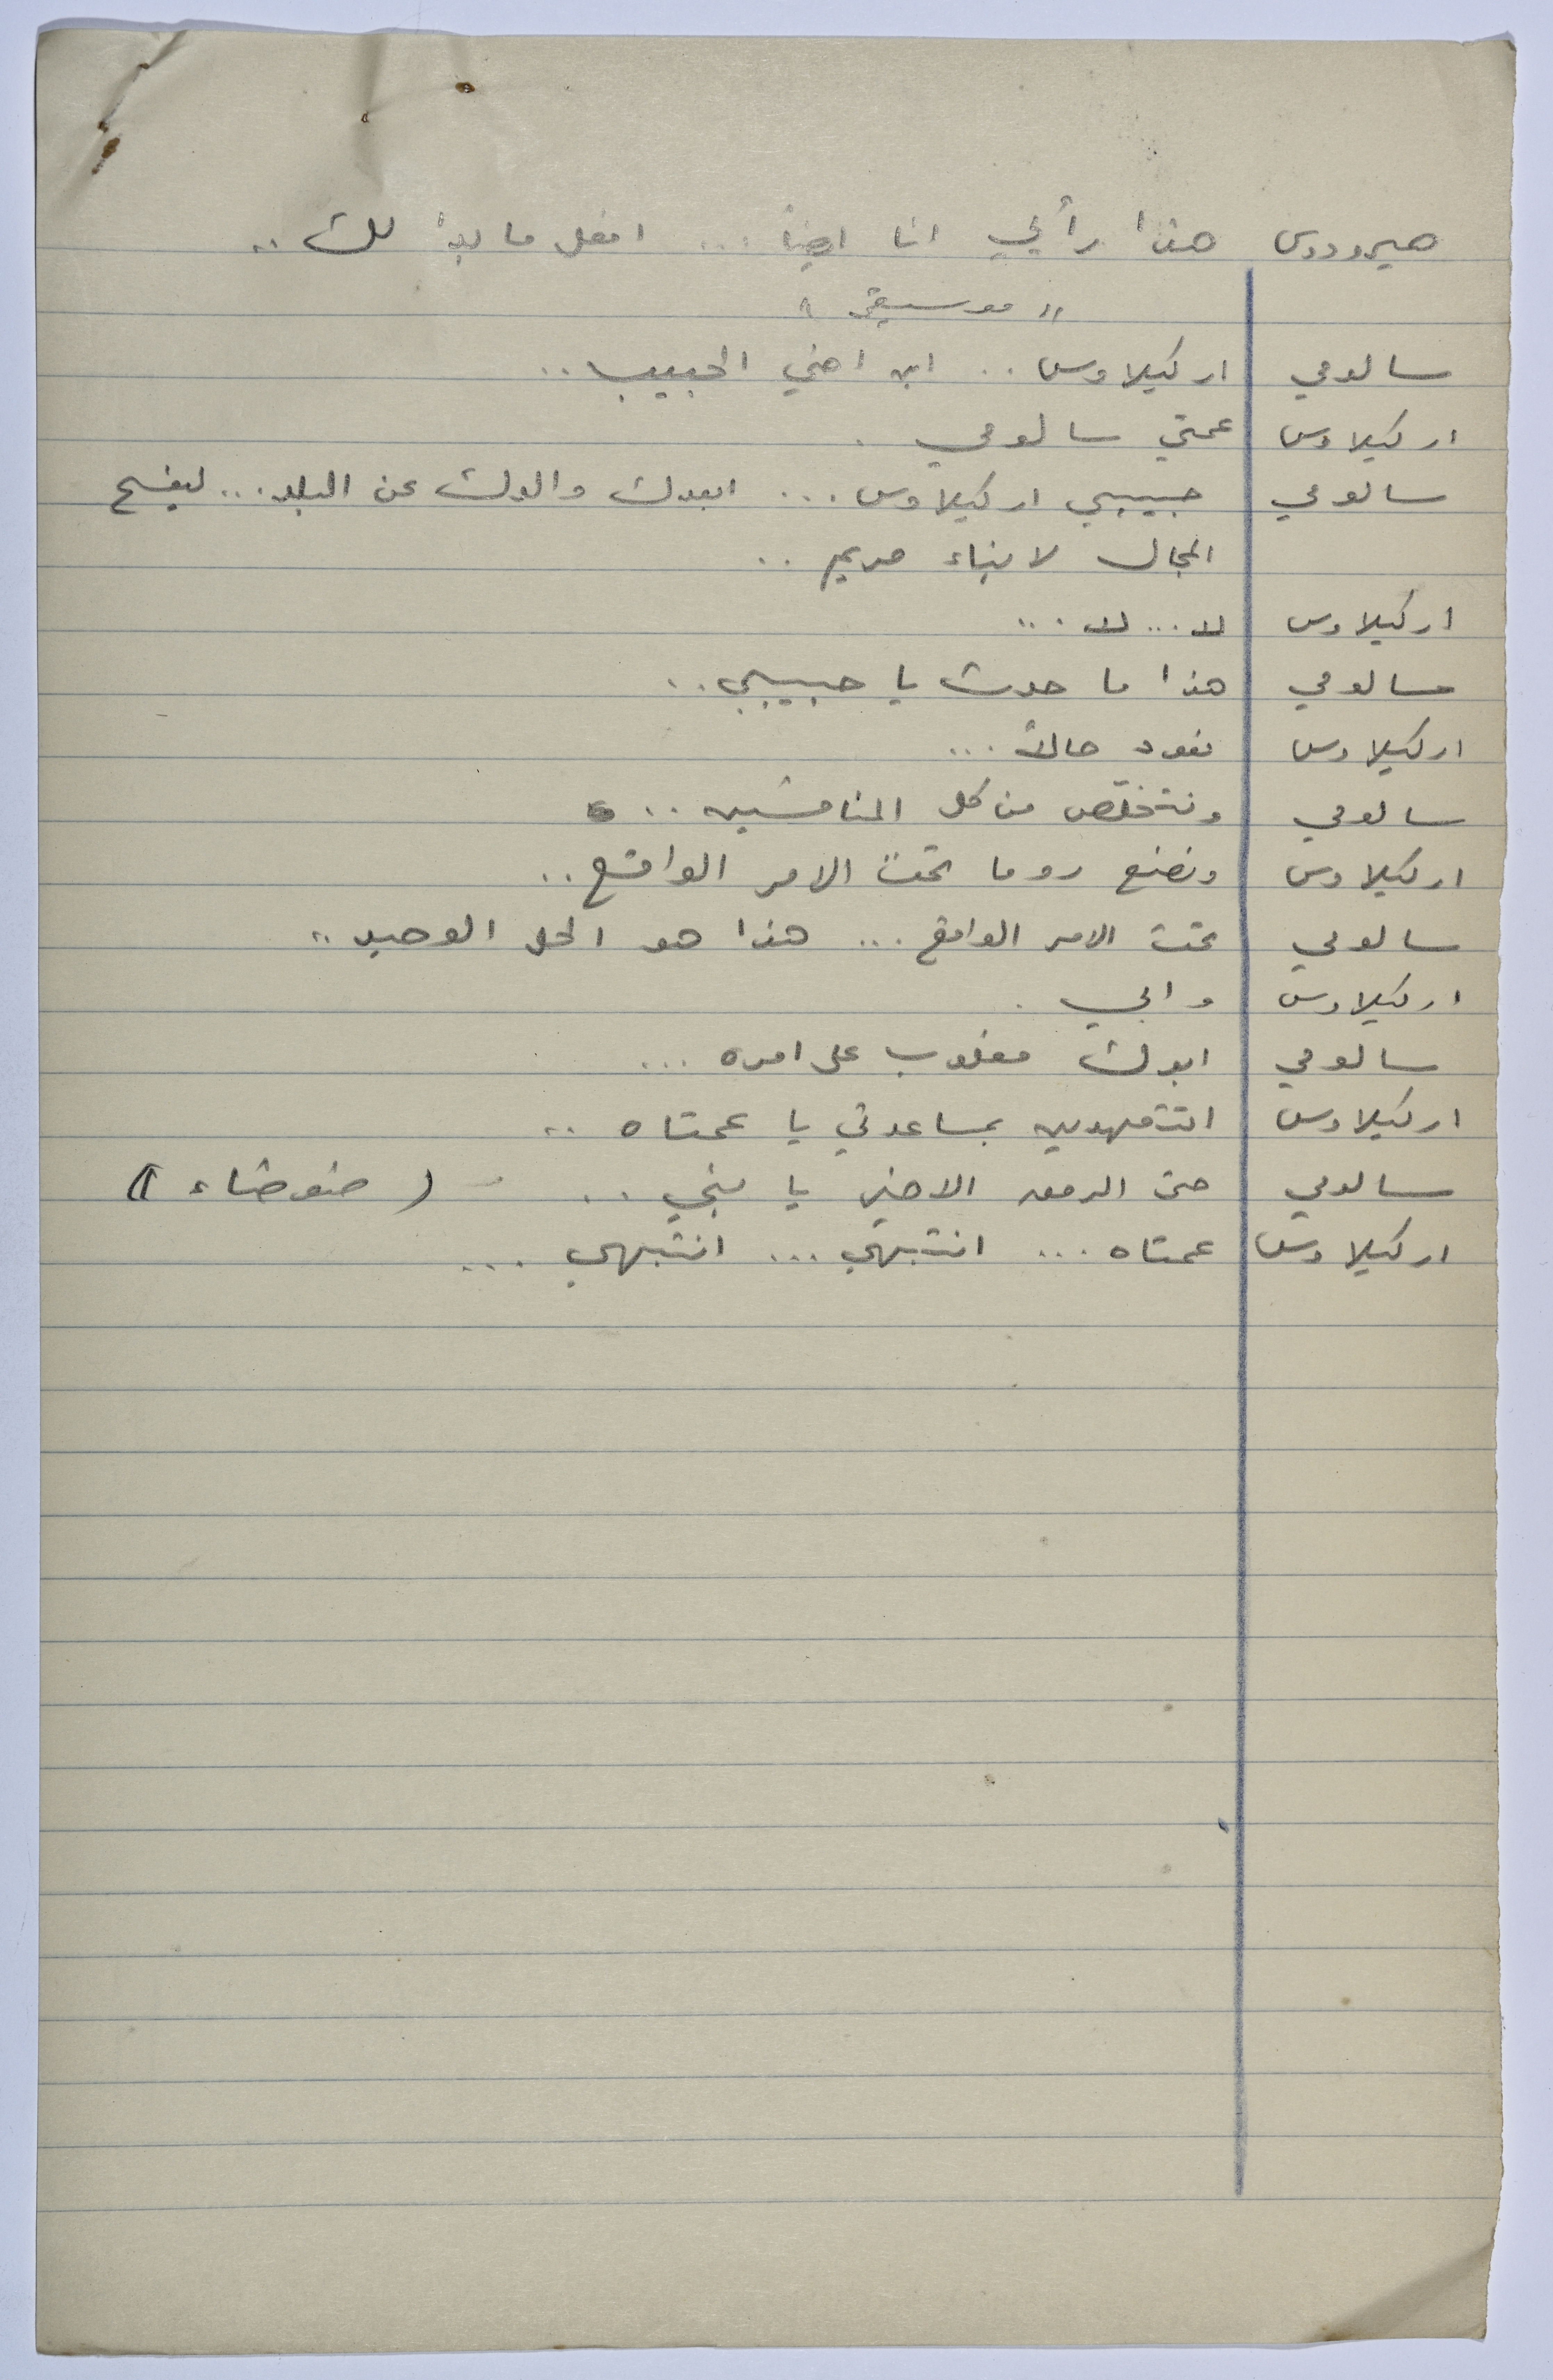 هيرودوس هذا رأيي انا ايضاً ... افعل ما بدا لك ..
" موسيقى "
سالومي اركيلاوس .. ابن اخي الحبيب ..
اركيلاوس عمتي سالومي .
سالومي حبيبي اركيلاوس ... ابعدك والدك عن البلد ... ليفسح
المجال لابناء مريم ..
اركيلاوس لا ... لا ...
سالومي هذا ما حدث يا حبيبي ..
اركيلاوس نعود حالاً ...
سالومي ونتخلص من كل المنافسين ..
اركيلاوس ونضع روما تحت الامر الواقع ..
سالومي تحت الامر الواقع ... هذا هو الحل الوحيد ..
اركيلاوس وابي .
سالومي ابوك مغلوب على امره ...
اركيلاوس اتتعهدين بمساعدتي يا عمتاه ..
سالومي حتى الرمق الاخير يا بني .. ( ضوضاء )
اركيلاوس عمتاه ... انتبهي ... انتبهي ...